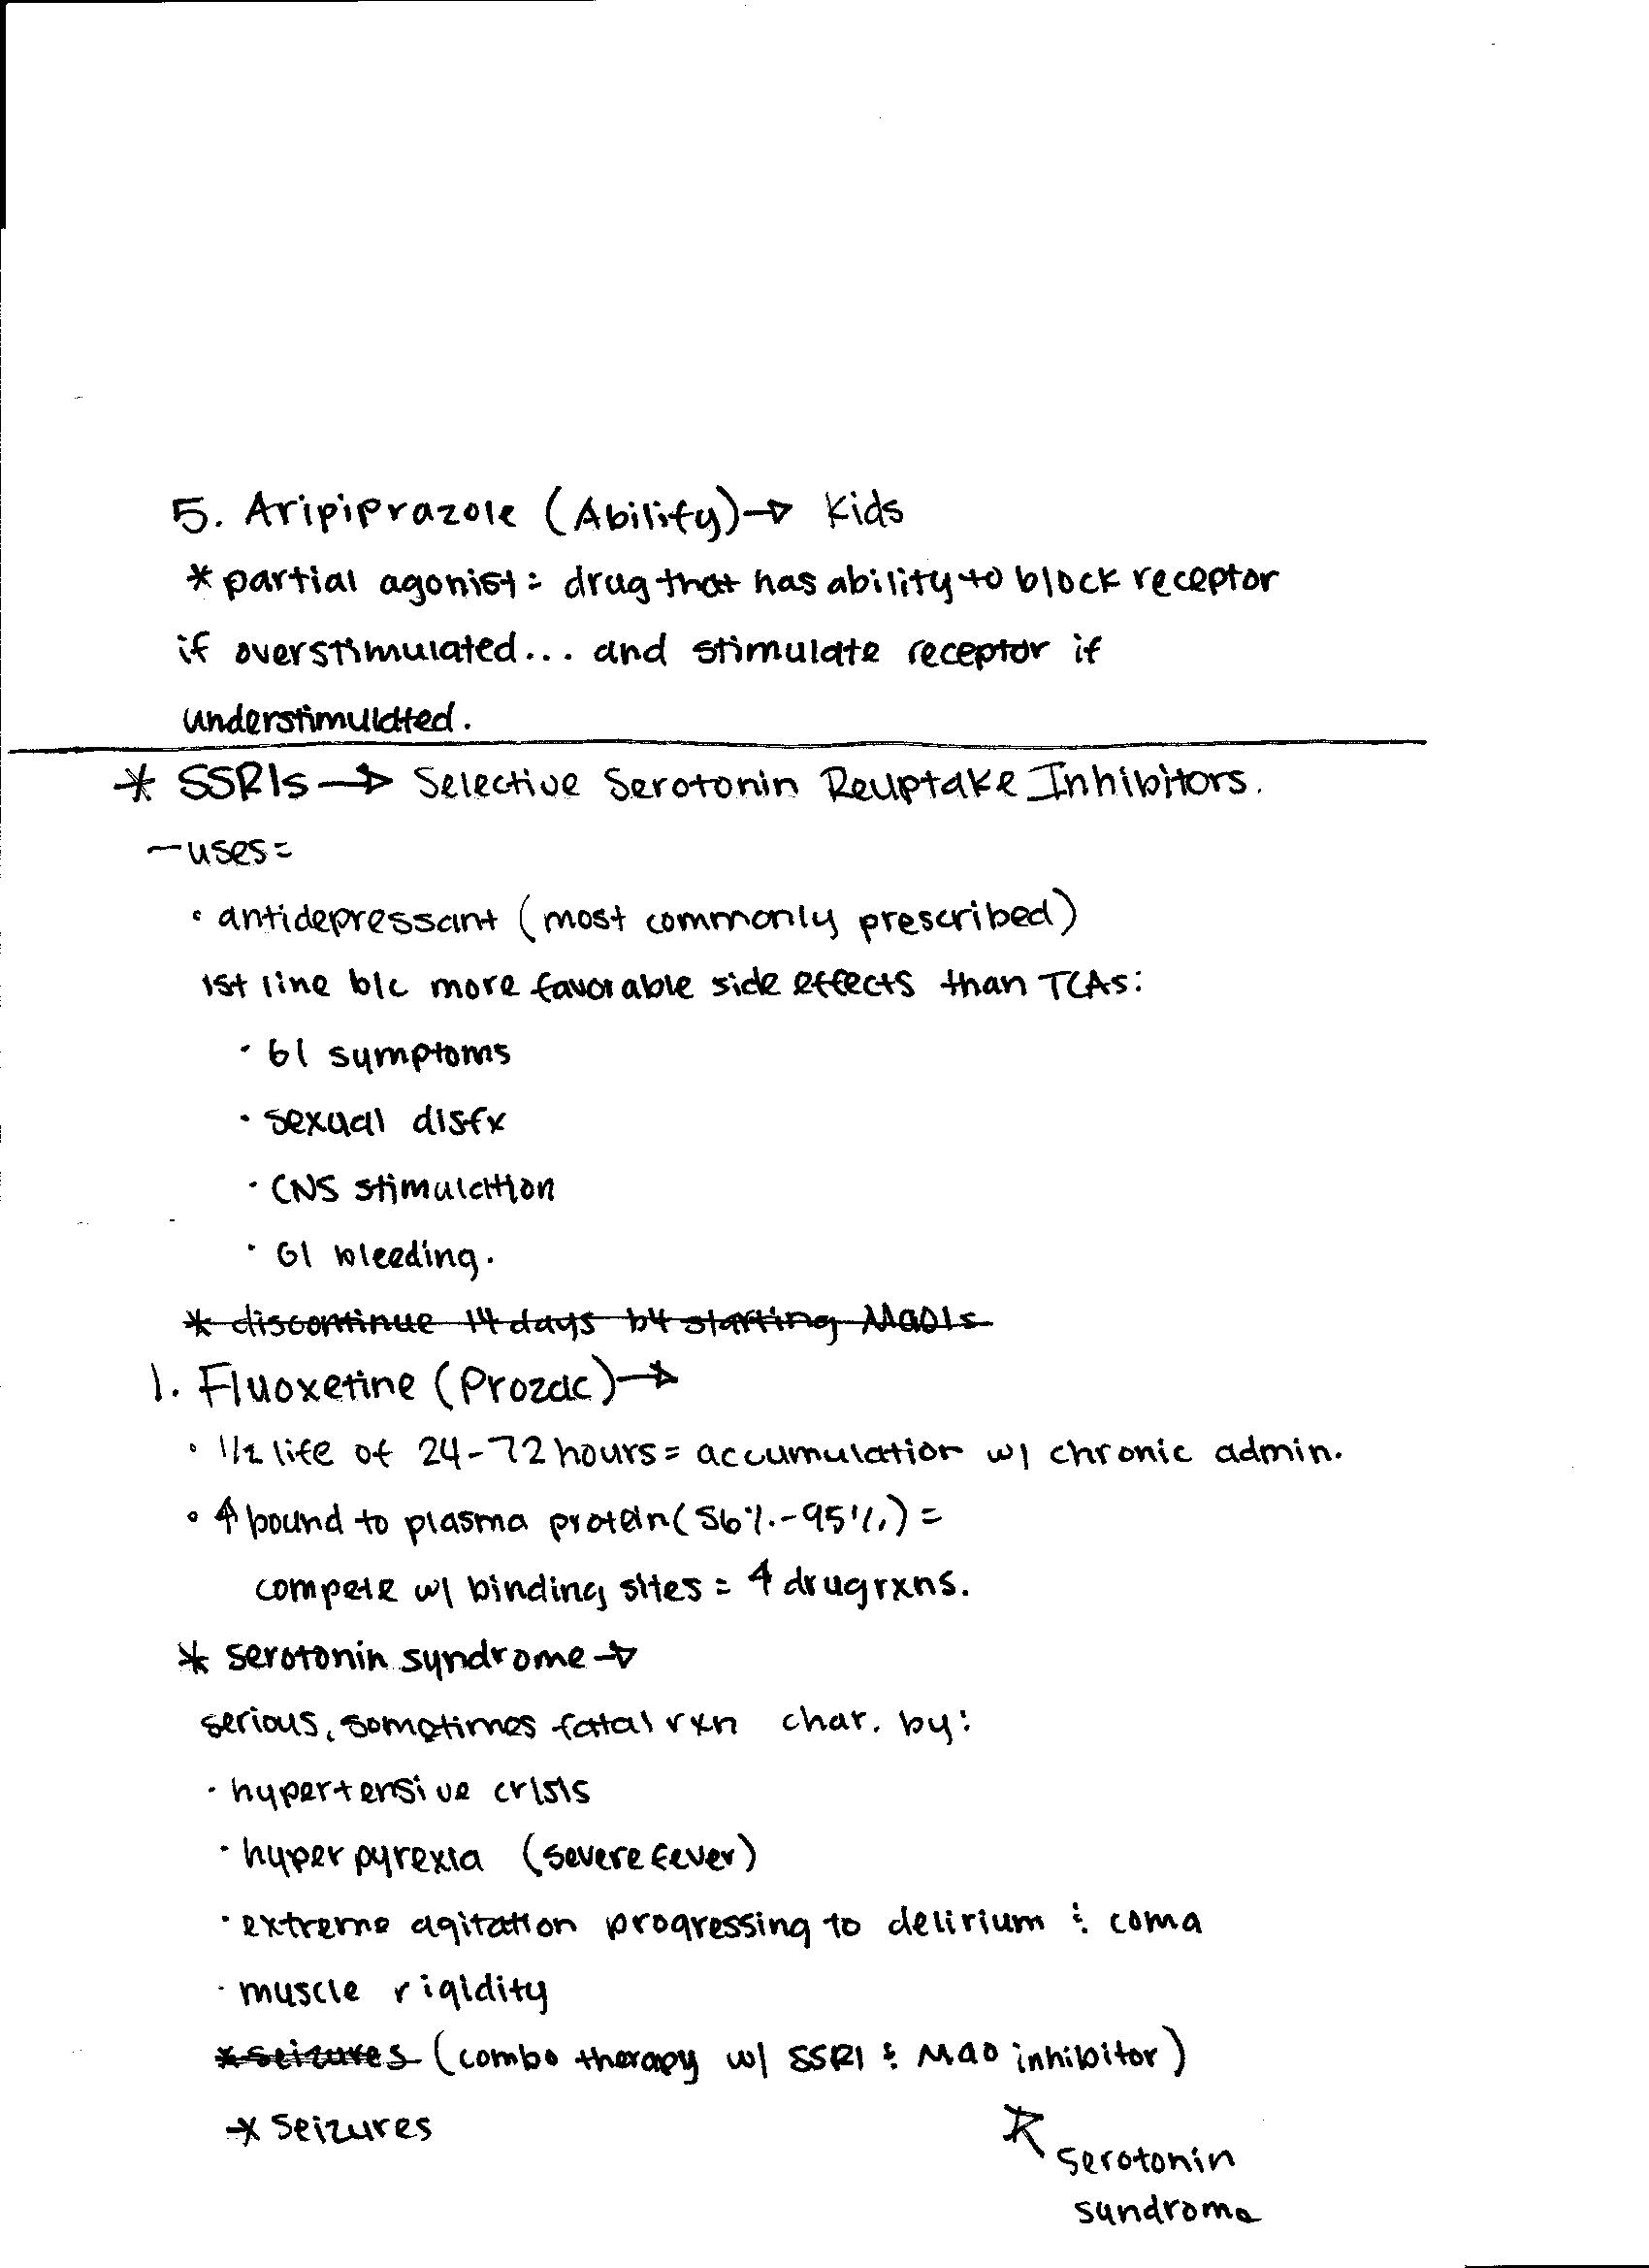 5. Aripiprazole (Ability)→ Kids
* partial agonist = drug that has ability to block receptor
if overstimulated... and stimulate receptor if
understimulated.
* SSRIs → Selective Serotonin Reuptake Inhibitors.
- uses=
• antidepressant (most commonly prescribed)
1st line b/c more favorable side effects than TCAs:
• GI symptoms
• sexual disfx
• CNS stimulation
• GI bleeding.
* discontinue 14 days b4 starting MAOIs
1. Fluoxetine (Prozac)→
• 1/2 life of 24-72 hours = accumulation w/ chronic admin.
• ↑ bound to plasma protein (56%-95%) =
compete w/ binding sites = ↑ drug rxns.
* serotonin syndrome →
serious, sometimes fatal rxn char. by:
• hypertensive crisis
• hyperpyrexia (severe fever)
• extreme agitation progressing to delirium & coma
• muscle rigidity
* seizures (combo therapy w/ SSRI & MAO inhibitor)
* seizures
serotonin
syndrome